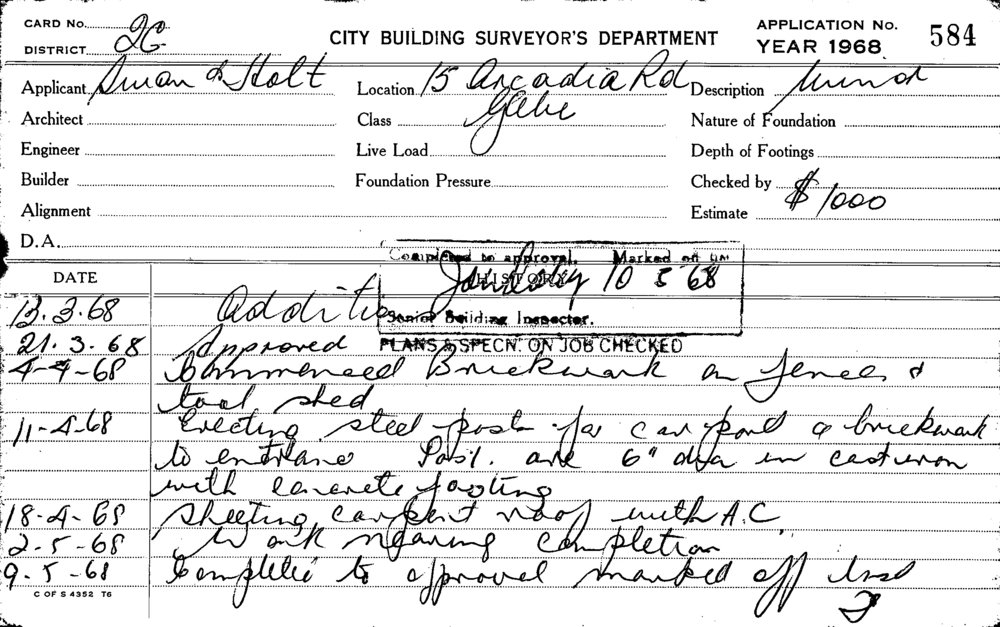 CARD No. 2G
DISTRICT
CITY BUILDING SURVEYOR'S DEPARTMENT
APPLICATION No. 584
YEAR 1968
Applicant Swan & Holt
Location 15 Arcadia Rd
Description
Architect
Class Glebe
Nature of Foundation
Engineer
Live Load
Depth of Footings
Builder
Foundation Pressure
Checked by
Alignment
Estimate $1000
D.A.
Completed to approval. Marked off on
HISTORY 10 5 68
Senior Building Inspector.
PLANS & SPECN. ON JOB CHECKED
DATE
13.3.68 Additions
21.3.68 Approved
4-4-68 Commenced Brickwork on fences &
tool shed
11-4-68 Erecting steel posts for carport & brickwork
to entrance Posts are 6" dia in cast iron
with concrete footing
18-4-68 Sheeting carport roof with A.C.
2-5-68 Work nearing completion
9-5-68 Complete to approval marked off
C OF S 4352 T6